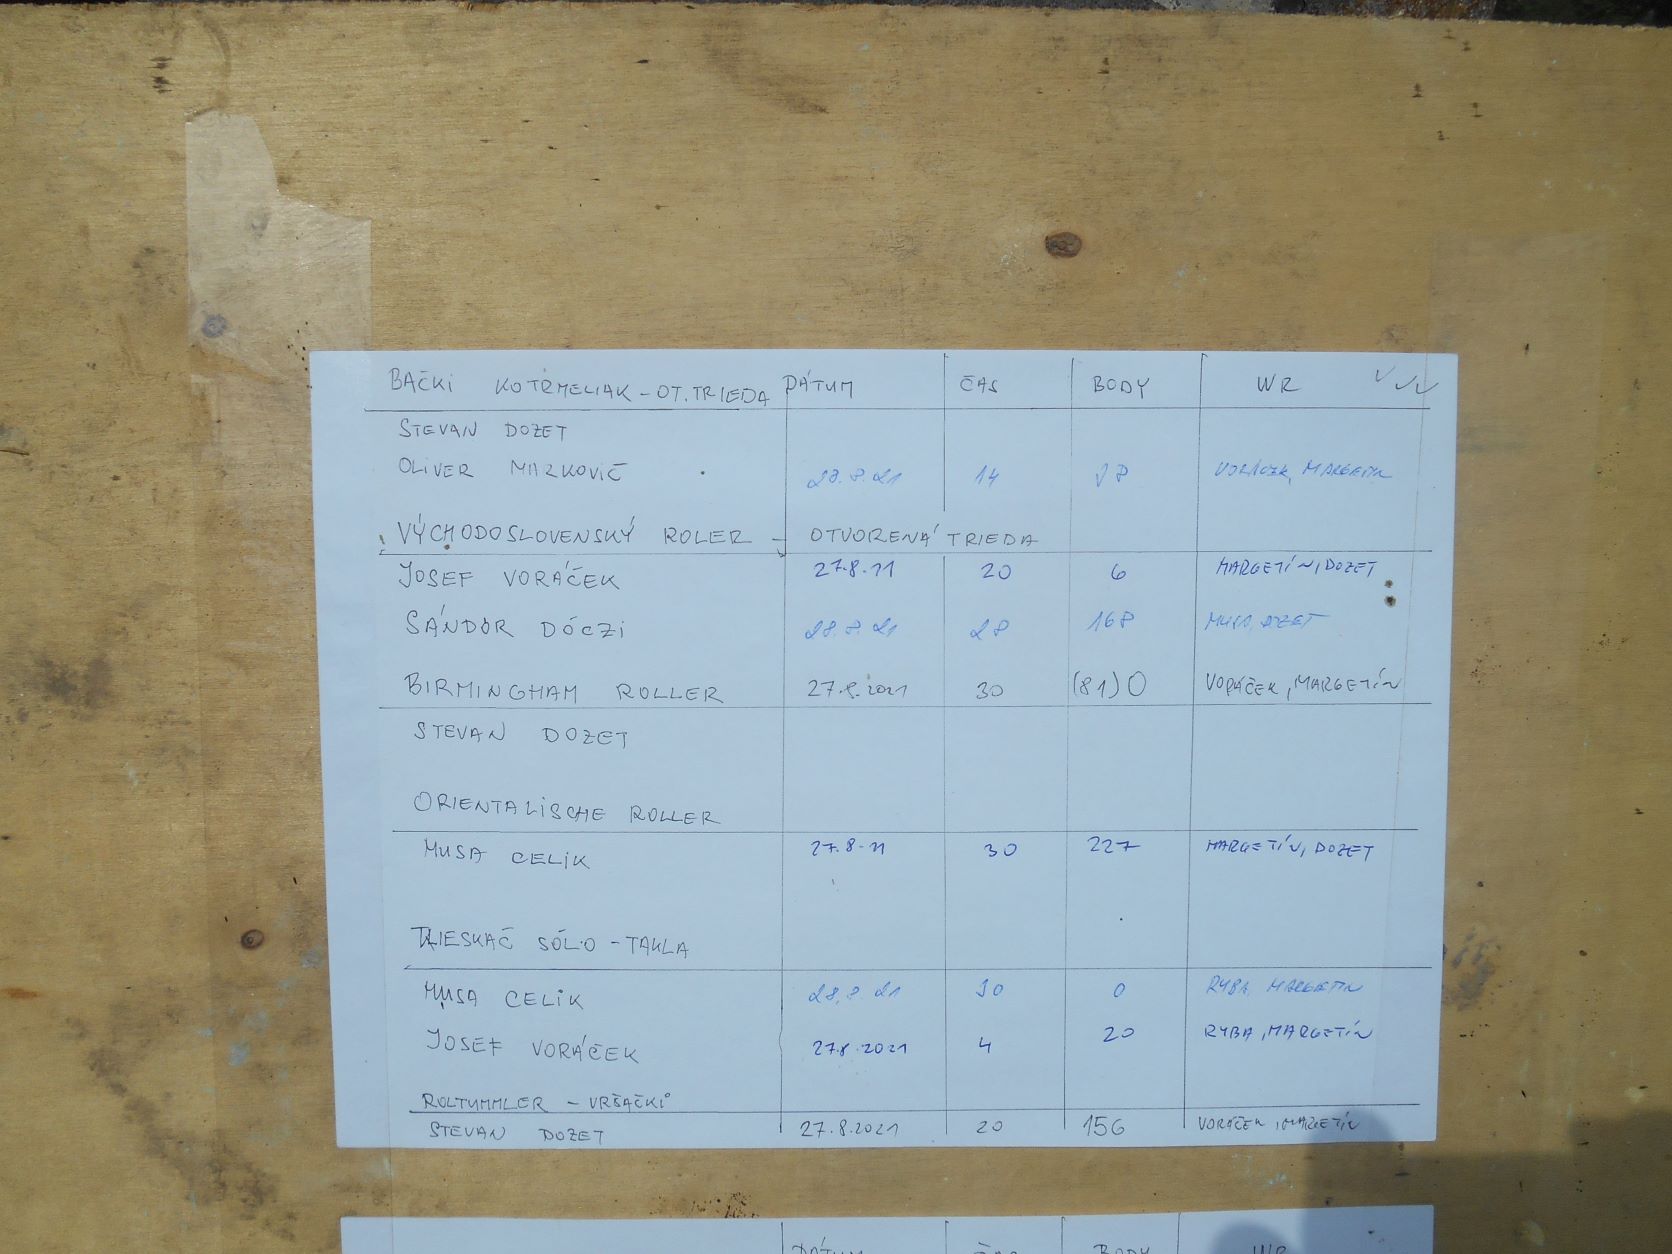 BAČKI KOTRMELIAK - OT. TRIEDA DÁTUM ČAS BODY WR
STEVAN DOZET
OLIVER MARKOVIČ 28.8.21 14 VORÁČEK, MARGETIN
VÝCHODOSLOVENSKÝ ROLER - OTVORENÁ TRIEDA
JOSEF VORÁČEK 27.8.21 20 6 MARGETÍN, DOZET
SÁNDOR DÓCZI 28.8.21 28 168 MUSA, DOZET
BIRMINGHAM ROLLER 27.8.2021 30 (81) 0 VORÁČEK, MARGETÍN
STEVAN DOZET
ORIENTALISCHE ROLLER
MUSA CELIK 27.8.21 30 227 MARGETÍN, DOZET
TLIESKAČ SÓLO - TAKLA
MUSA CELIK 28.8.21 30 0 RYBA, MARGETIN
JOSEF VORÁČEK 27.8.2021 4 20 RYBA, MARGETÍN
ROLTUMMLER - VRŠAČKI
STEVAN DOZET 27.8.2021 20 156 VORÁČEK, MARGETÍN
DÁTUM ČAS BODY WR